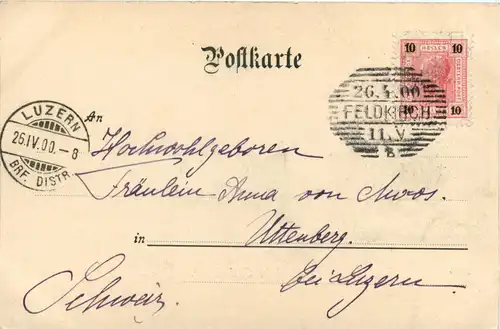 Postkarte
10 HELLER 10
10 10
26.4.00
FELDKIRCH
11.V
8
LUZERN
26.IV.00.-8
BRF. DISTR.
An
Hochwohlgeboren
Fräulein Anna von
in Uttenberg.
bei Luzern.
Schweiz.